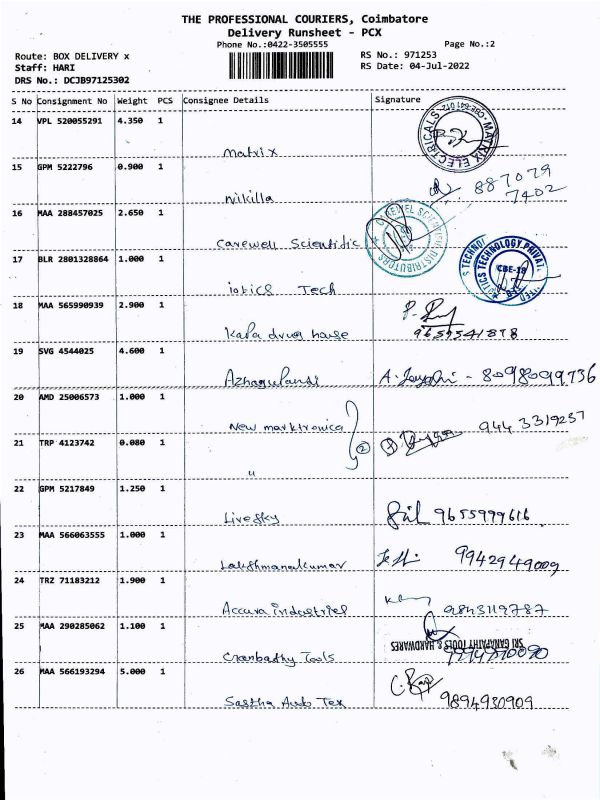 THE PROFESSIONAL COURIERS, Coimbatore
Delivery Runsheet - PCX
Phone No.:0422-3505555
Page No.:2
Route: BOX DELIVERY x
RS No.: 971253
Staff: HARI
RS Date: 04-Jul-2022
DRS No.: DCJB97125302
S No Consignment No Weight PCS Consignee Details Signature
14 VPL 520055291 4.350 1
MATRIX ELECTRICALS CBE-641 012
matrix
15 GPM 5222796 0.900 1
nilkilla
887079
7402
16 MAA 288457025 2.650 1
Carewell Scientific
17 BLR 2801328864 1.000 1
CBE-18
iotics Tech
18 MAA 565990939 2.900 1
Kala drug house
9659541898
19 SVG 4544025 4.600 1
8098099736
20 AMD 25006573 1.000 1
New marktronica
944 3319257
21 TRP 4123742 0.080 1
2
"
22 GPM 5217849 1.250 1
Livesky 9655999616
23 MAA 566063555 1.000 1
Lakshmanakumar 9942949009
24 TRZ 71183212 1.900 1
Accura industries 9843119787
25 MAA 290285062 1.100 1
SRI GANAPATHY TOOLS & HARDWARES
Tools
26 MAA 566193294 5.000 1
Sastha Auto Tex 9894930909